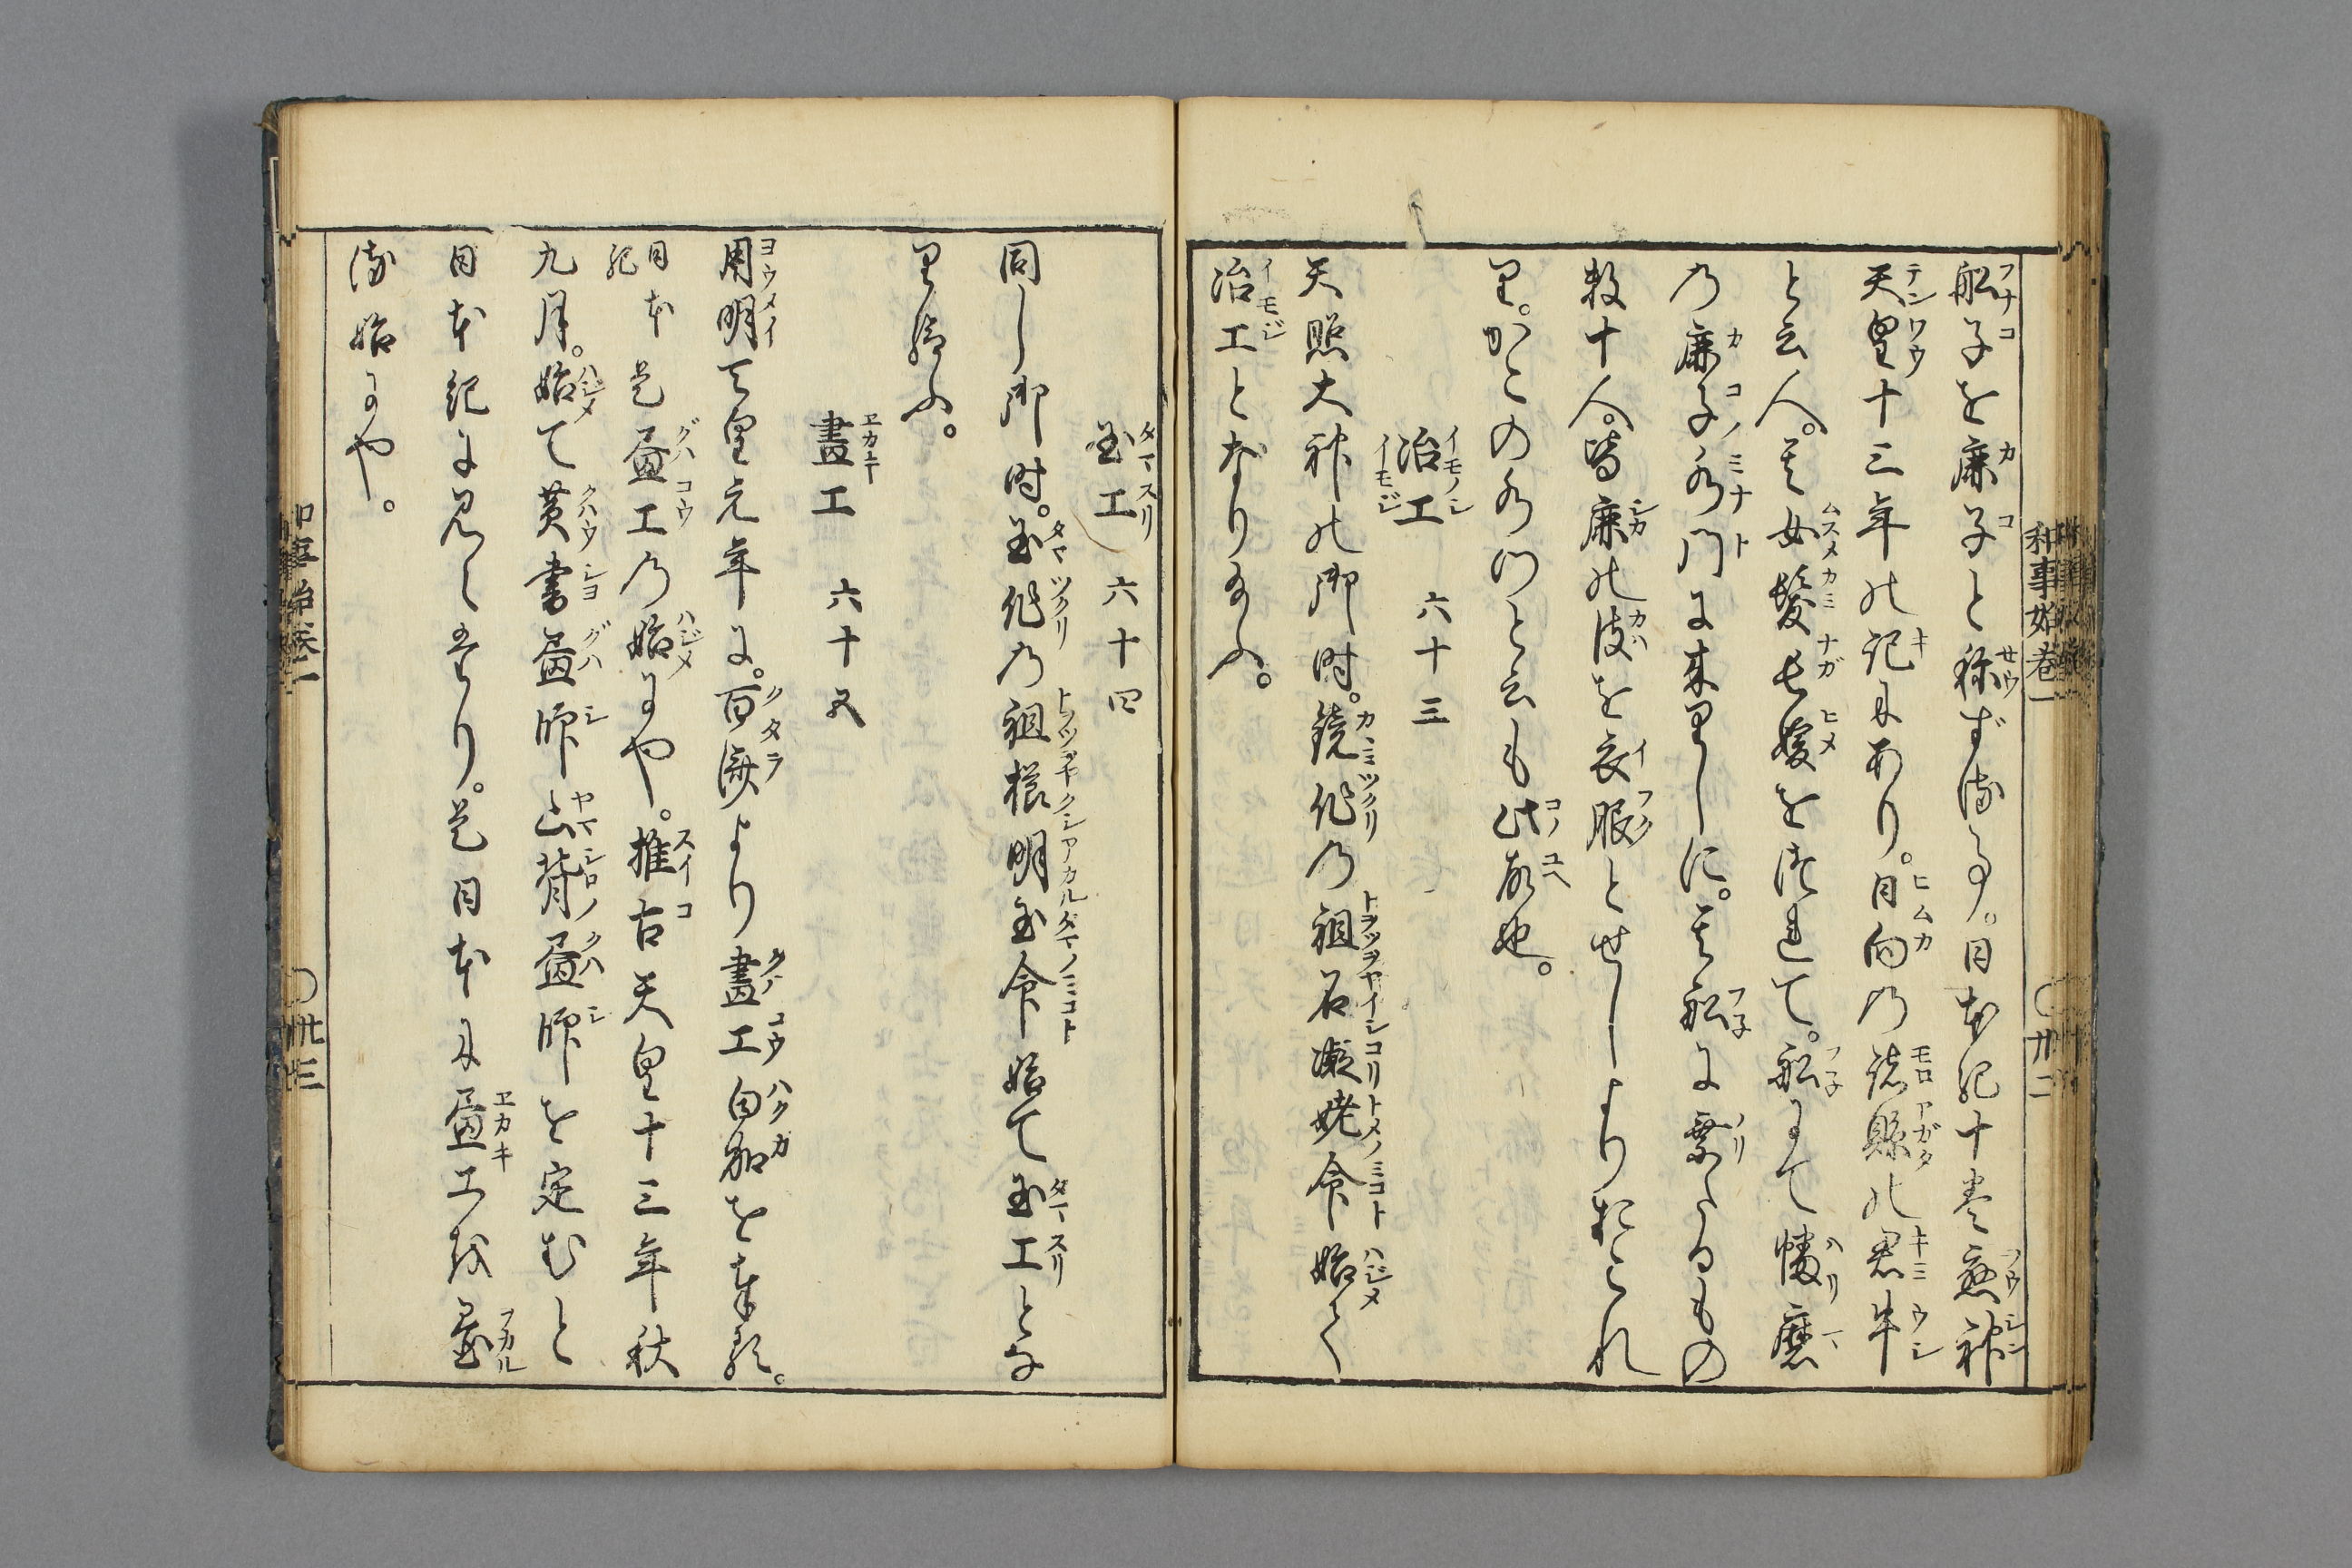 和事始巻一 〇廿二
船子を廉子と称ずる事。日本紀十巻應神
天皇十三年の記にあり。日向の諸縣の君牛
と云人。其女髪長媛をつれて。船にて幡磨
の廉子水門に来りしに。其船に乗たるもの
数十人。皆廉の皮を衣服とせしよりおこれ
り。かこの水門と云も此故也。
冶工 六十三
天照大神の御時。鏡作の祖石凝姥命始て
冶工となり給ふ。
玉工 六十四
同し御時。玉作の祖櫛明玉命始て玉工とな
り給ふ。
畫工 六十五
用明天皇元年に。百済より畫工白加を奉る。
日本紀 是畫工の始にや。推古天皇十三年秋
九月。始て黄書畫師山背畫師を定むと
日本紀に見えたり。是日本に畫工を置
る始にや。
和事始巻一 〇廿三